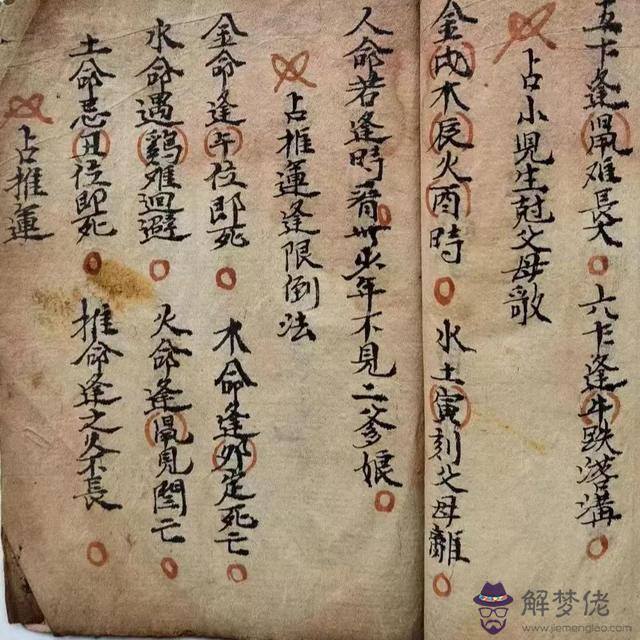 五卞逢鼠难長大 六卞逢牛跌溝
占小児生尅父母
金戌木辰火酉時 水土寅刻父母離
人命若逢時着此 少年不見二爹娘
占推運逢限倒法
金命逢午位即死 木命逢卯定死亡
水命遇鷄难迴避 火命逢鼠見閻亡
土命忌丑位即死 推命逢之久不長
占推運
解梦佬
www.jiemenglao.com